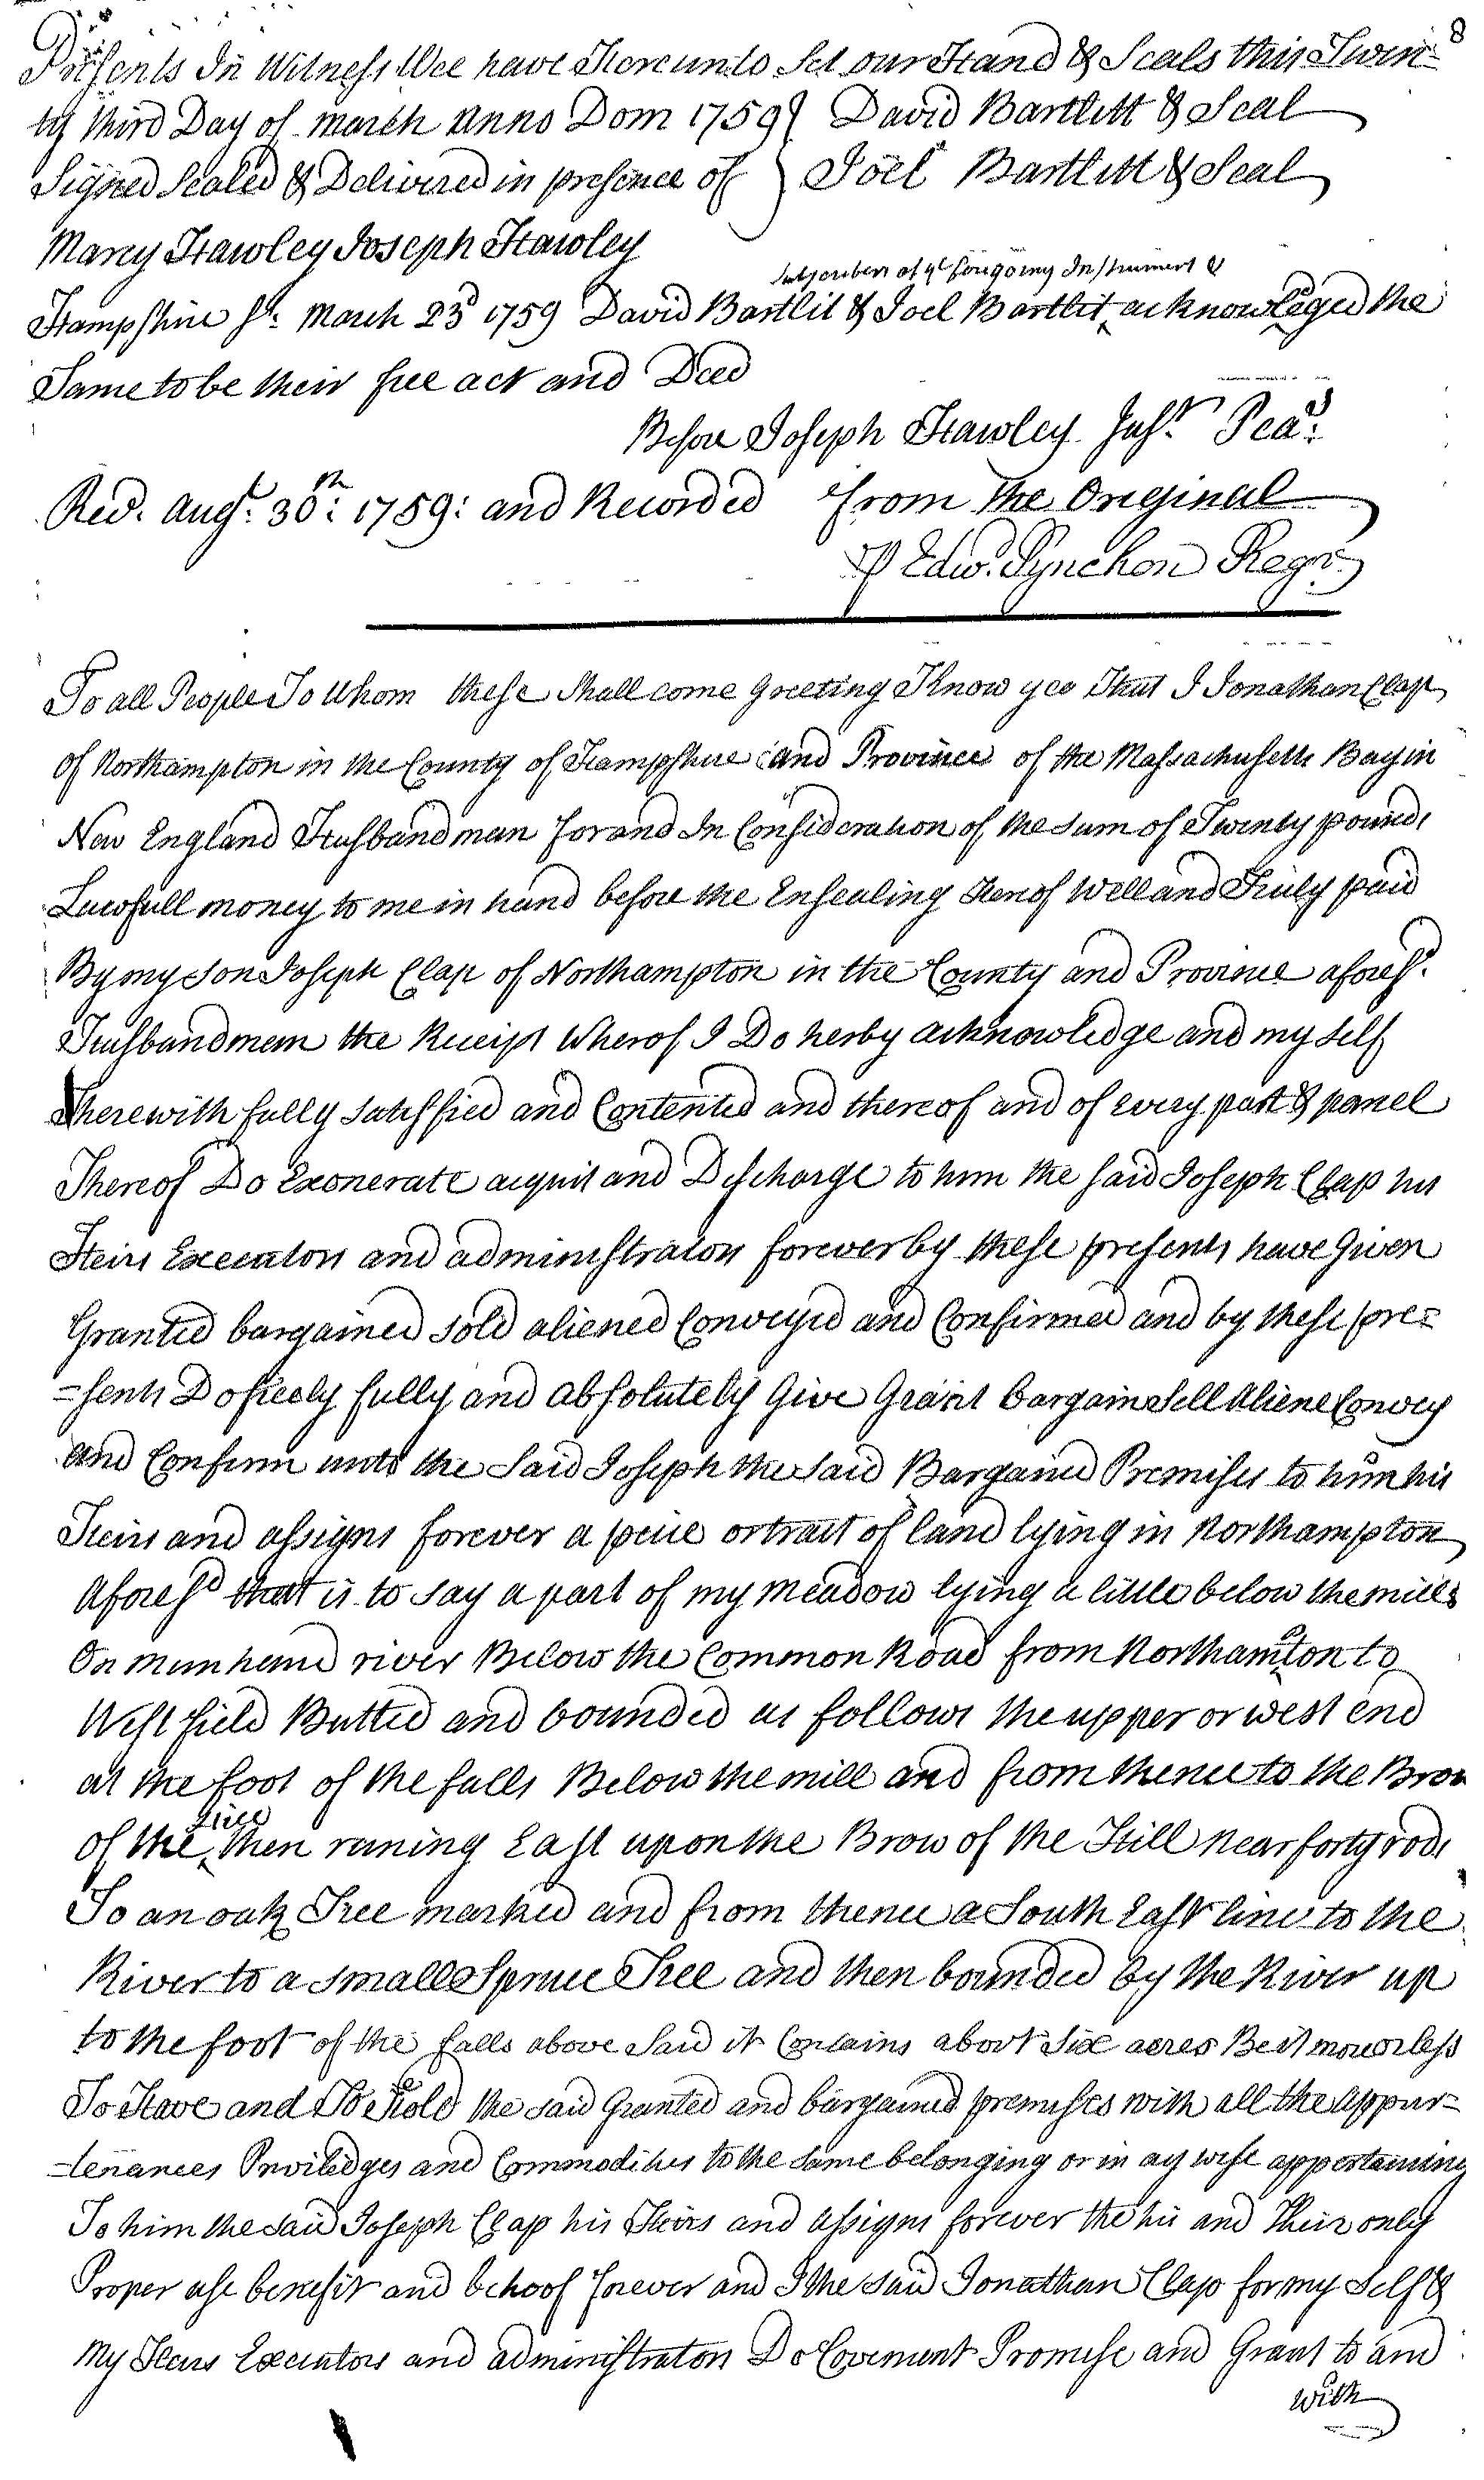 Presents In Witness Wee have Hereunto Set our Hand & Seals this Twen-
ty third Day of march anno Dom 1759 } David Bartlitt & Seal
Signed Sealed & Delivered in presence of } Joel Bartlitt & Seal
Mary Hawley Joseph Hawley
Subscribers of ye foregoing Instrument &
Hampshire Ss: March 23d 1759 David Bartlit & Joel Bartlit acknowleged the
Same to be their free act and Deed
Before Joseph Hawley Just. Peas:
Recd. augt. 30th: 1759: and Recorded from the Original
⅌ Edwd. Pynchon Regr.
To all People To whom these Shall come Greeting Know yee that I Jonathan Clap
of Northampton in the County of Hampshire and Province of the Massachusetts Bay in
New England Husbandman for and In Consideration of the sum of Twenty pounds
Lawfull money to me in hand before the Ensealing therof Well and Truly paid
By my son Joseph Clap of Northampton in the County and Province aforesd.
Husbandman the Receipt Wherof I Do herby acknowledge and my self
Therewith fully satisfied and Contented and thereof and of every part & parcel
Thereof Do Exonerate acquit and Discharge to him the said Joseph Clap his
Heirs Executors and administrators forever by these presents have Given
Granted bargained sold aliened Conveyed and Confirmed and by these pre=
=sents Do freely fully and absolutely Give Grant bargain sell aliene Convey
and Confirm unto the said Joseph the said Bargained Premises to him his
Heirs and assigns forever a peice or tract of land lying in Northampton
aforesd that is to say a part of my meadow lying a little below the mills
On munhand river Below the Common Road from Northamton to
Westfield Butted and bounded as follows the upper or west end
at the foot of the falls Below the mill and from thence to the Brow
of the hill then runing East upon the Brow of the Hill near forty rods
To an oak Tree marked and from thence a South East line to the
River to a small Spruce Tree and then bounded by the River up
to the foot of the falls above said it Contains about Six acres Be it more or less
To Have and To Hold the said Granted and bargained premises with all the appur=
=tenances Priviledges and Commodities to the same belonging or in ay wise appertaining
To him the said Joseph Clap his Heirs and assigns forever the his and Their only
Proper use benefit and behoof forever and I the said Jonathan Clap for my self &
my Heirs Executors and administrators Do Covenant Promise and Grant to and
with